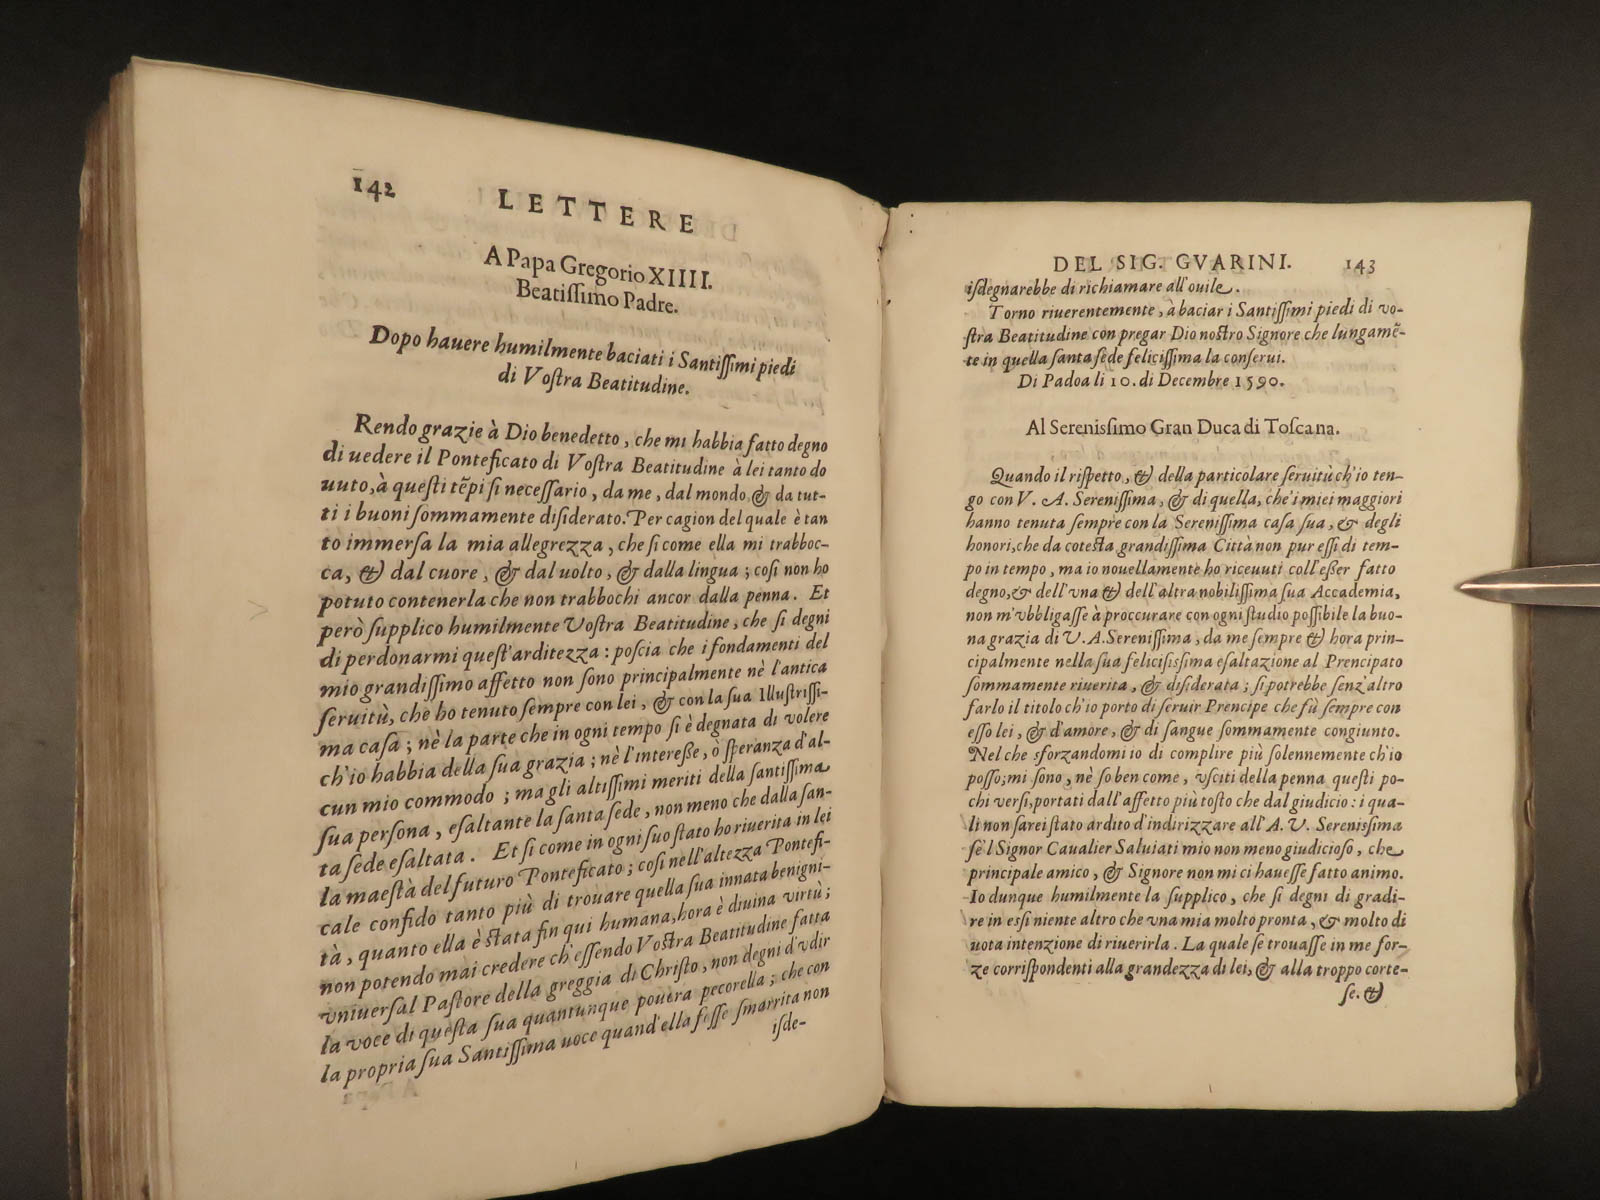 142
LETTERE
A Papa Gregorio XIIII.
Beatiſſimo Padre.
Dopo hauere humilmente baciati i Santiſſimi piedi
di Voſtra Beatitudine.
Rendo grazie à Dio benedetto, che mi habbia fatto degno
di uedere il Ponteficato di Voſtra Beatitudine à lei tanto do
uuto, à queſti tẽpi ſi neceſſario, da me, dal mondo, & da tut-
ti i buoni ſommamente diſiderato. Per cagion del quale è tan
to immerſa la mia allegrezza, che ſi come ella mi traboc-
ca, & dal cuore, & dal uolto, & dalla lingua; coſi non ho
potuto contenerla che non trabbochi ancor dalla penna. Et
però ſupplico humilmente Voſtra Beatitudine, che ſi degni
di perdonarmi queſt'arditezza: poſcia che i fondamenti del
mio grandiſſimo affetto non ſono principalmente nè l'antica
ſeruitù, che ho tenuto ſempre con lei, & con la ſua Illuſtriſſi-
ma caſa; nè la parte che in ogni tempo ſi è degnata di volere
ch'io habbia della ſua grazia; nè l'intereſſe, ò ſperanza d'al-
cun mio commodo; ma gli altiſſimi meriti della ſantiſſima
ſua perſona, eſaltante la ſanta ſede, non meno che dalla ſan-
ta ſede eſaltata. Et ſi come in ogni ſuo ſtato ho riuerita in lei
la maeſtà del futuro Ponteficato; coſi nell'altezza Pontefi-
cale confido tanto più di trouare quella ſua innata benigni-
tà, quanto ella è ſtata fin qui humana, hora è diuina virtù;
non potendo mai credere ch'eſſendo Voſtra Beatitudine fatta
vniuerſal Paſtore della greggia di Chriſto, non degni d'vdir
la voce di queſta ſua quantunque pouera pecorella; che con
la propria ſua Santiſſima uoce quand'ella feſſe ſmarrita non
iſde-
DEL SIG. GVARINI. 143
iſdegnarebbe di richiamare all'ouile.
Torno riuerentemente, à baciar i Santiſſimi piedi di vo-
ſtra Beatitudine con pregar Dio noſtro Signore che lungamẽ-
te in quella ſanta ſede feliciſſima la conſerui.
Di Padoa li 10. di Decembre 1590.
Al Sereniſſimo Gran Duca di Toſcana.
Quando il riſpetto, & della particolare ſeruitù ch'io ten-
go con V. A. Sereniſſima, & di quella, che i miei maggiori
hanno tenuta ſempre con la Sereniſſima caſa ſua, & degli
honori, che da coteſta grandiſſima Città non pur eſſi di tem-
po in tempo, ma io nouellamente ho riceuuti coll'eſſer fatto
degno, & dell'vna & dell'altra nobiliſſima ſua Accademia,
non m'vbbligaſſe à proccurare con ogni ſtudio poſſibile la buo-
na grazia di V. A. Sereniſſima, da me ſempre & hora prin-
cipalmente nella ſua feliciſsima eſaltazione al Prencipato
ſommamente riuerita, & diſiderata; ſi potrebbe ſenz'altro
farlo il titolo ch'io porto di ſeruir Prencipe che fù ſempre con
eſſo lei, & d'amore, & di ſangue ſommamente congiunto.
Nel che sforzandomi io di complire più ſolennemente ch'io
poſſo; mi ſono, nè ſo ben come, vſciti della penna queſti po-
chi verſi, portati dall'affetto più toſto che dal giudicio: i qua-
li non ſarei ſtato ardito d'indirizzare all'A. V. Sereniſſima
ſe'l Signor Caualier Saluiati mio non meno giudicioſo, che
principale amico, & Signore non mi ci haueſſe fatto animo.
Io dunque humilmente la ſupplico, che ſi degni di gradi-
re in eſſi niente altro che vna mia molto pronta, & molto di
uota intenzione di riuerirla. La quale ſe trouaſſe in me for-
ze corriſpondenti alla grandezza di lei, & alla troppo corte-
ſe. &